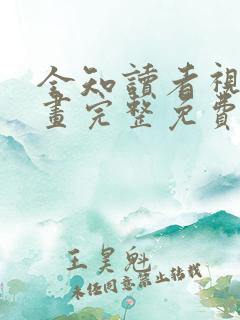 全知讀者視
畫完整免費
王昊魁
未经同意禁止转载